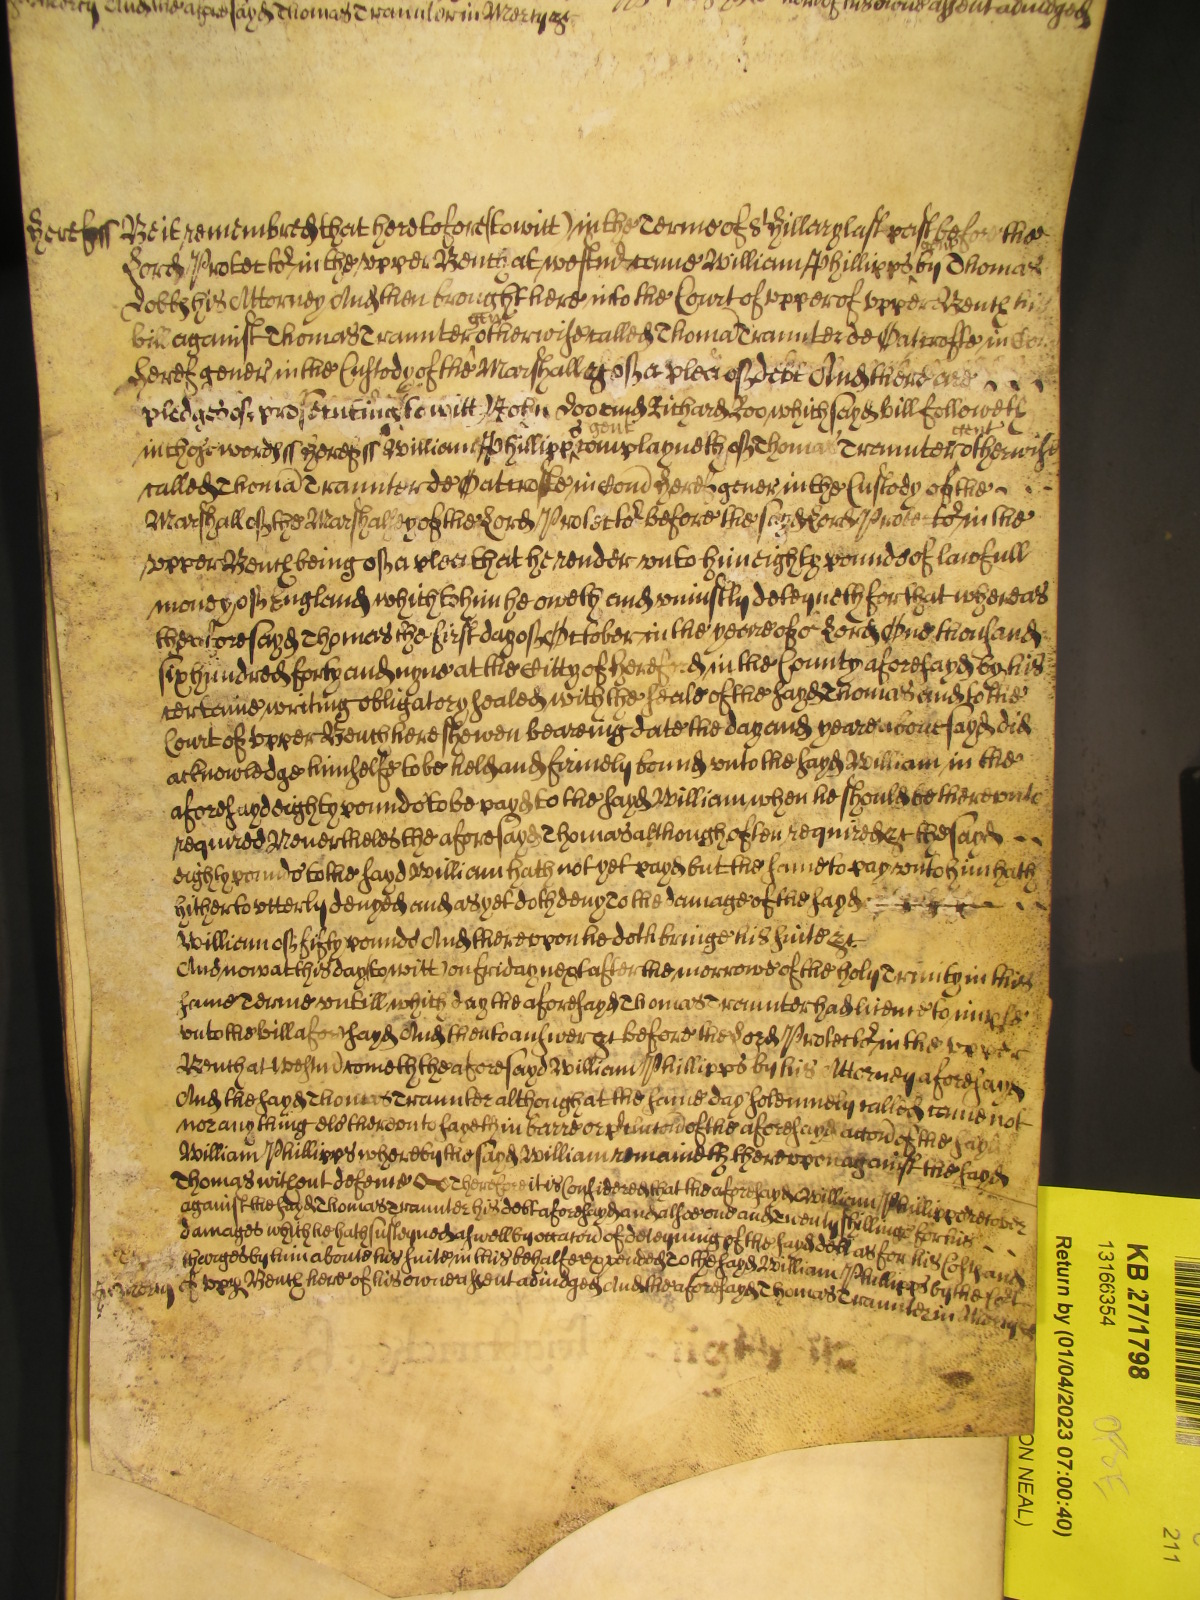 And the aforesayd Thomas Traunter in Mercy &c
of his owne assent adiudged
Herefss Be it remembred that heretofore (to witt) in the Terme of St Hillary last past before the
Lord Protector in the vpper Bench at westmr came William Phillipps gent by Thomas
his Attorney And then brought here into the Court of vpper of vpper Bench his
bill against Thomas Traunter gent otherwise called Thoma Traunter de in Com
Heref gener in the Custody of the Marshall &c of a plea of debt And there are
pledges of prosecuting (to witt) John Doo and Richard Roo which sayd bill followeth
in thes words ss Herefss William Phillipps gent complayneth of Thomas Traunter gent otherwise
called Thoma Traunter de in Com Heref gener in the Custody of the
Marshall of the Marshallsey of the Lord Protector before the sayd Lord Protector in the
vpper Bench being of a plea that he render vnto him eighty pounds of lawfull
money of England which to him he oweth and vniustly deteyneth for that whereas
the aforesayd Thomas the first day of October in the yeare of or Lord One thousand
six hundred forty and nyne at the Citty of Hereford in the County aforesayd by his
certaine writing obligatory sealed with the seale of the sayd Thomas and to the
Court of vpper Bench here shewen beareing date the day and yeare aboue sayd did
acknowledge himselfe to be held and firmely bound vnto the sayd William in the
aforesayd eighty pounds to be payd to the sayd William when he should be therevnto
required Neuertheles the aforesayd Thomas although often required &c the sayd
eighty pounds to the sayd William hath not yet payd but the same to pay vnto him hath
hitherto vtterly denyed and as yet doth deny To the damage of the sayd
William of fifty pounds And therevpon he doth bringe his suite &c
And now at this day (to witt) on friday next after the morrowe of the holy Trinity in this
same Terme vntill which day the aforesayd Thomas Traunter had licence to imparle
vnto the bill aforesayd And then to answer &c before the Lord Protector in the vpper
Bench at Westmr cometh the aforesayd William Phillipps by his Attorney aforesayd
And the sayd Thomas Traunter although at the same day solemnely called came not
nor any thing els therevnto sayeth in barre or of the aforesayd accon of the sayd
William Phillipps whereby the sayd William remaineth therevpon against the sayd
Thomas without defence Therefore it is Considered that the aforesayd William Phillipps recover
against the sayd Thomas Traunter his debt aforesayd and alsoe one and Twenty shillings for his
damages which he hath susteyned aswell by occacon of deteyning of the sayd debt as for his Costs and
charges by him aboute his suite in this behalfe expended To the sayd William Phillipps by the Cort
In Mercy of vpper Bench here of his owne assent adiudged And the aforesayd Thomas Traunter in Mercy &c
KB 27/1798
13166354
Return by (01/04/2023 07:00:40)
ON NEAL)
211